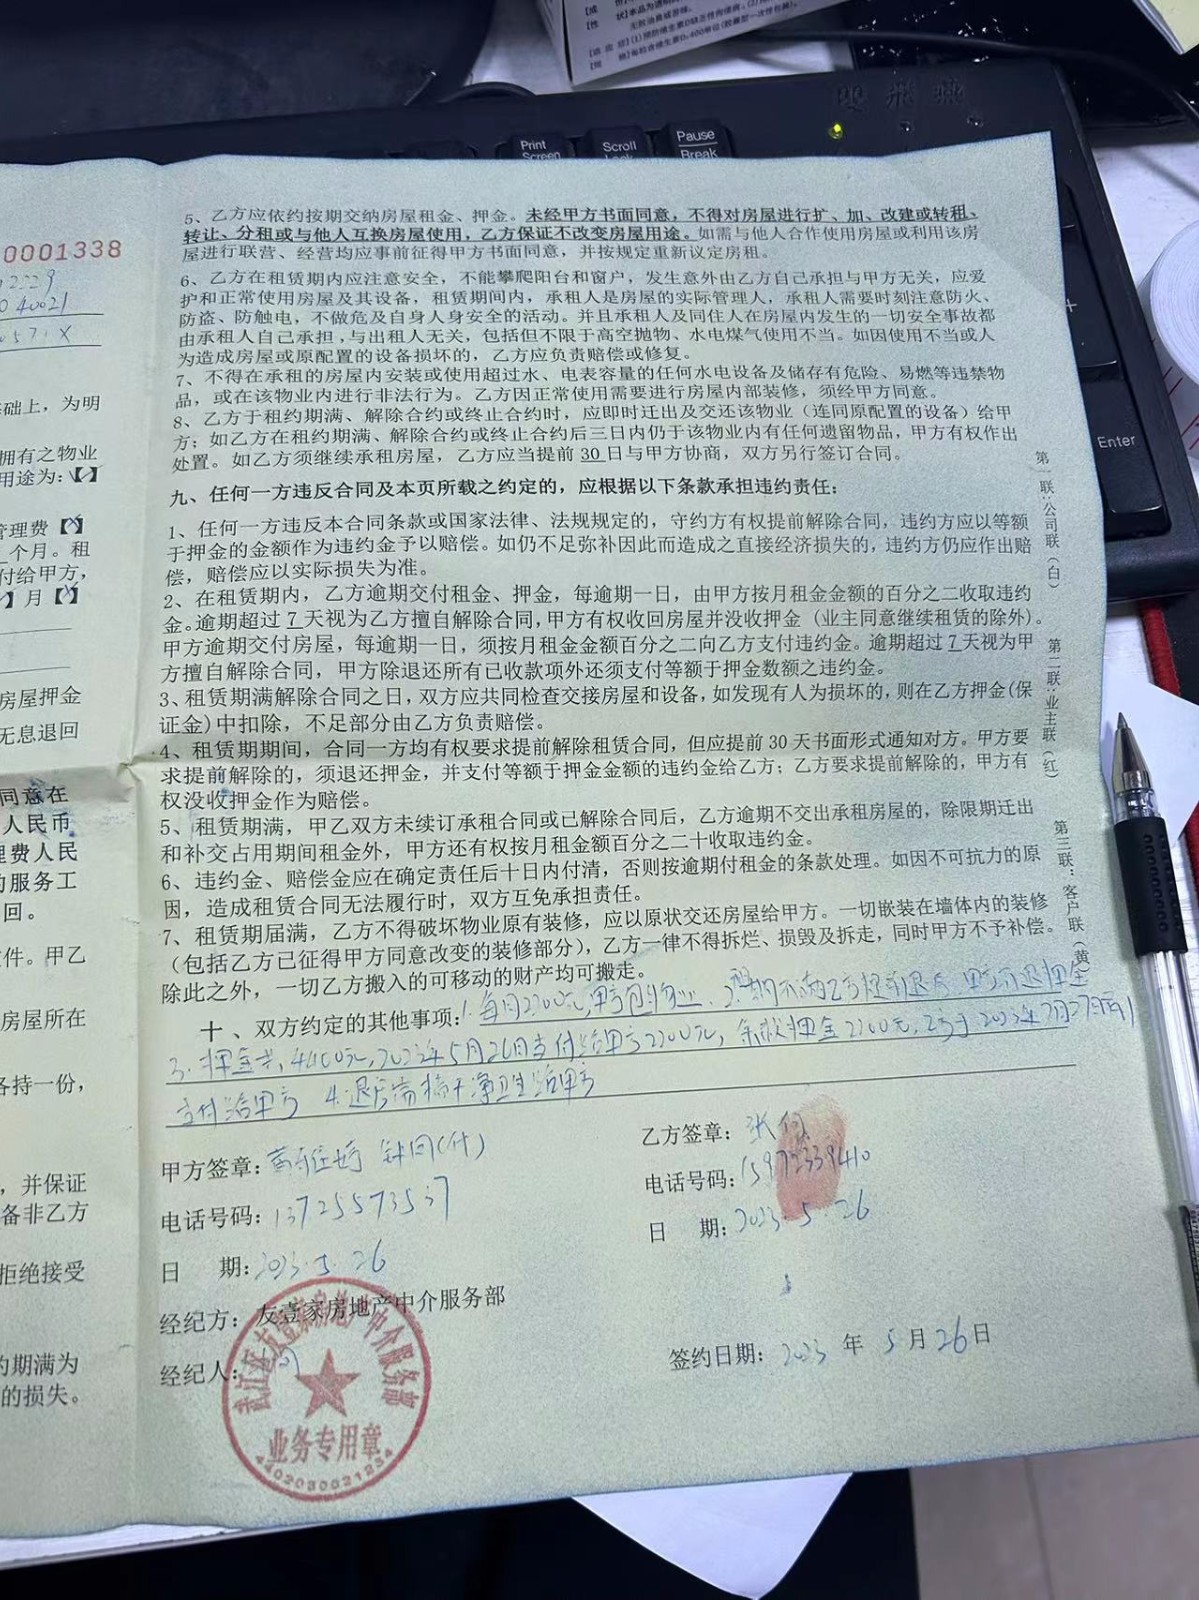 Print
Screen
Scroll
Lock
Pause
Break
Enter
0001338
5、乙方应依约按期交纳房屋租金、押金。未经甲方书面同意，不得对房屋进行扩、加、改建或转租、
转让、分租或与他人互换房屋使用，乙方保证不改变房屋用途。如需与他人合作使用房屋或利用该房
屋进行联营、经营均应事前征得甲方书面同意，并按规定重新议定房租。
6、乙方在租赁期内应注意安全，不能攀爬阳台和窗户，发生意外由乙方自己承担与甲方无关，应爱
护和正常使用房屋及其设备，租赁期间内，承租人是房屋的实际管理人，承租人需要时刻注意防火、
防盗、防触电，不做危及自身人身安全的活动。并且承租人及同住人在房屋内发生的一切安全事故都
由承租人自己承担,与出租人无关，包括但不限于高空抛物、水电煤气使用不当。如因使用不当或人
为造成房屋或原配置的设备损坏的，乙方应负责赔偿或修复。
7、不得在承租的房屋内安装或使用超过水、电表容量的任何水电设备及储存有危险、易燃等违禁物
品，或在该物业内进行非法行为。乙方因正常使用需要进行房屋内部装修，须经甲方同意。
8、乙方于租约期满、解除合约或终止合约时，应即时迁出及交还该物业（连同原配置的设备）给甲
方；如乙方在租约期满、解除合约或终止合约后三日内仍于该物业内有任何遗留物品，甲方有权作出
处置。如乙方须继续承租房屋，乙方应当提前30日与甲方协商，双方另行签订合同。
九、任何一方违反合同及本页所载之约定的，应根据以下条款承担违约责任：
1、任何一方违反本合同条款或国家法律、法规规定的，守约方有权提前解除合同，违约方应以等额
于押金的金额作为违约金予以赔偿。如仍不足弥补因此而造成之直接经济损失的，违约方仍应作出赔
偿，赔偿应以实际损失为准。
2、在租赁期内，乙方逾期交付租金、押金，每逾期一日，由甲方按月租金金额的百分之二收取违约
金。逾期超过7天视为乙方擅自解除合同，甲方有权收回房屋并没收押金（业主同意继续租赁的除外）。
甲方逾期交付房屋，每逾期一日，须按月租金金额百分之二向乙方支付违约金。逾期超过7天视为甲
方擅自解除合同，甲方除退还所有已收款项外还须支付等额于押金数额之违约金。
3、租赁期满解除合同之日，双方应共同检查交接房屋和设备，如发现有人为损坏的，则在乙方押金(保
证金)中扣除，不足部分由乙方负责赔偿。
4、租赁期期间，合同一方均有权要求提前解除租赁合同，但应提前30天书面形式通知对方。甲方要
求提前解除的，须退还押金，并支付等额于押金金额的违约金给乙方；乙方要求提前解除的，甲方有
权没收押金作为赔偿。
5、租赁期满，甲乙双方未续订承租合同或已解除合同后，乙方逾期不交出承租房屋的，除限期迁出
和补交占用期间租金外，甲方还有权按月租金额百分之二十收取违约金。
6、违约金、赔偿金应在确定责任后十日内付清，否则按逾期付租金的条款处理。如因不可抗力的原
因，造成租赁合同无法履行时，双方互免承担责任。
7、租赁期届满，乙方不得破坏物业原有装修，应以原状交还房屋给甲方。一切嵌装在墙体内的装修
（包括乙方已征得甲方同意改变的装修部分），乙方一律不得拆烂、损毁及拆走，同时甲方不予补偿。
除此之外，一切乙方搬入的可移动的财产均可搬走。
十、双方约定的其他事项：1.每月2200元，甲方包物业. 2.租期不满乙方提前退房，甲方不退押金
3.押金共4400元，2023年5月26日支付给甲方2200元，余款押金2200元，乙方于2023年7月27日前
支付给甲方 4.退房需搞干净卫生给甲方
甲方签章：
电话号码：13725573537
日 期：2023.5.26
经纪方：友壹家房地产中介服务部
经纪人：
乙方签章：
电话号码：15972339410
日 期：2023.5.26
签约日期：2023年5月26日
武江区友壹家房地产中介服务部
业务专用章
4402030021234
第一联：公司联（白）
第二联：业主联（红）
第三联：客户联（黄）
2229
040021
571X
础上，为明
拥有之物业
用途为：【】
管理费【】
个月。租
付给甲方，
】月【】
房屋押金
无息退回
同意在
人民币
理费人民
的服务工
回。
件。甲乙
房屋所在
各持一份，
，并保证
备非乙方
拒绝接受
的期满为
的损失。